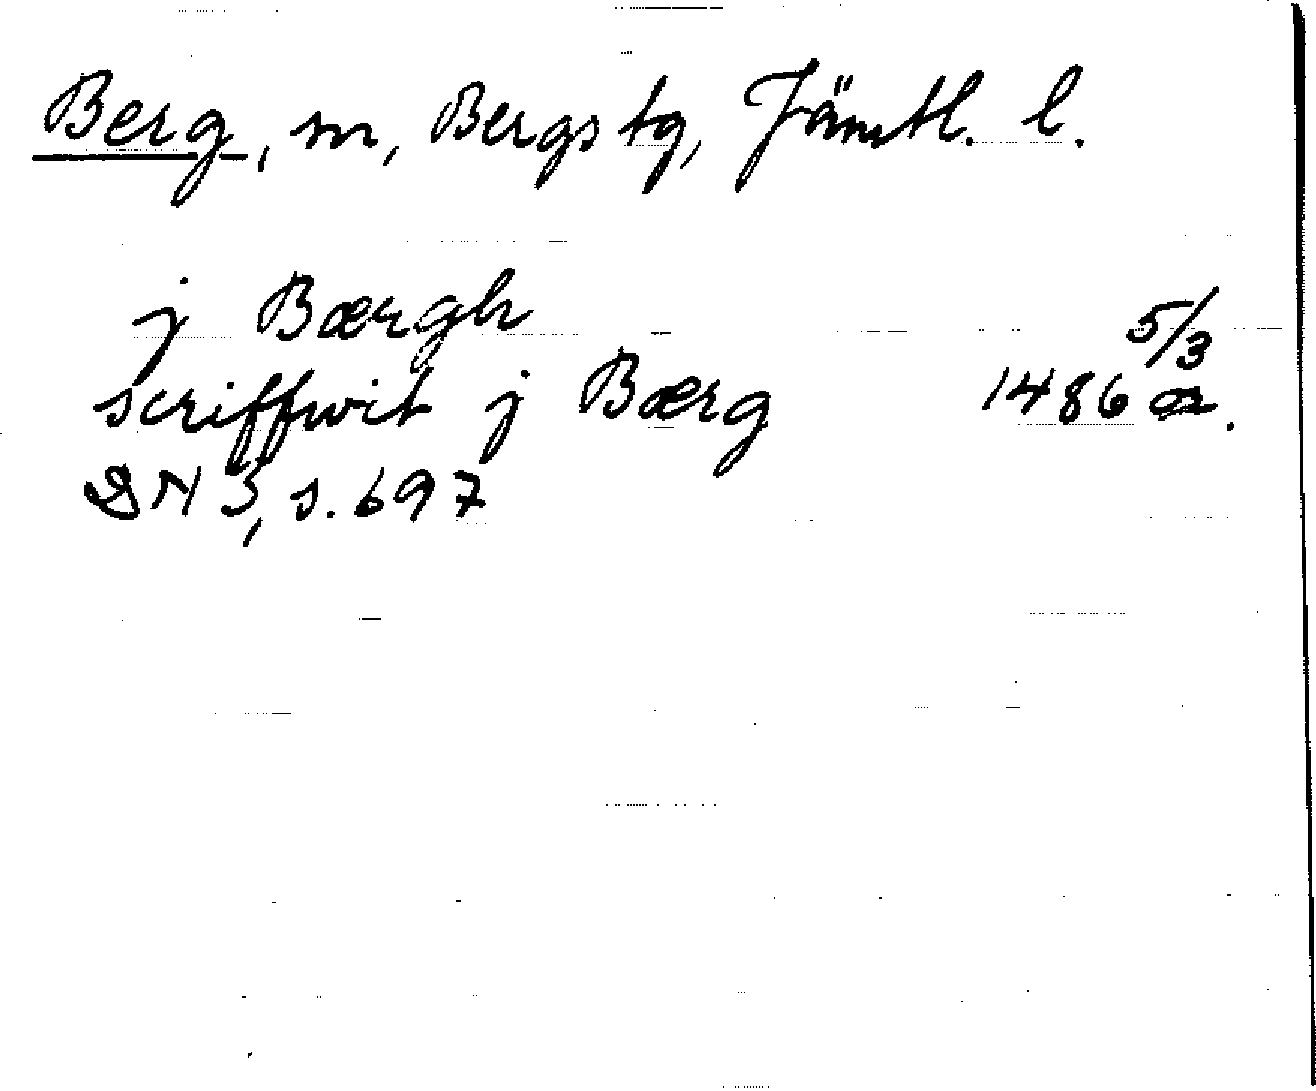 Berg, sn, Bergs tg, Jämtl. l.
j Bærgh
scriffwit j Bærg 5/3 1486 or.
DN 3, s. 697